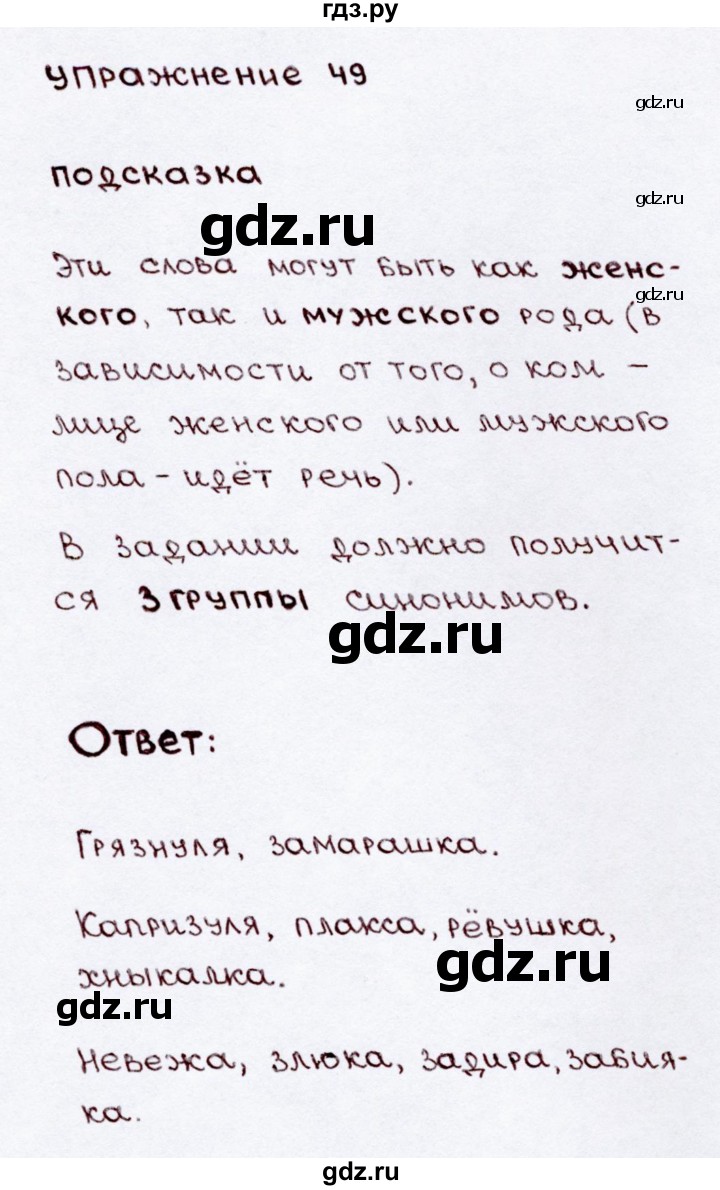 гдз.ру
упражнение 49
gdz.ru
подсказка
gdz.ru
gdz.ru
Эти слова могут быть как женс-
gdz.ru
кого, так и мужского рода (в
зависимости от того, о ком –
лице женского или мужского
пола – идёт речь).
В задании должно получит-
ся 3 группы синонимов.
gdz.ru
Ответ:
Грязнуля, замарашка.
Капризуля, плакса, рёвушка,
gdz.ru
хныкалка.
gdz.ru
Невежа, злюка, задира, забия-
ка.
gdz.ru